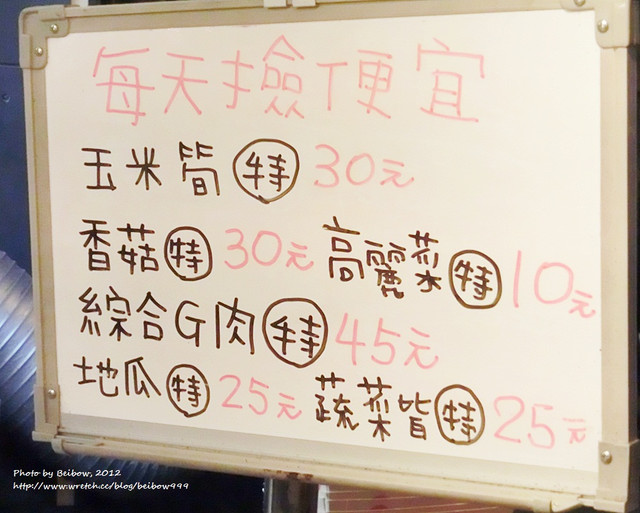 每天撿便宜
玉米筍 特 30元
香菇 特 30元 高麗菜 特 10元
綜合G肉 特 45元
地瓜 特 25元 蔬菜皆 特 25元
Photo by Beibow, 2012
http://www.wretch.cc/blog/beibow999